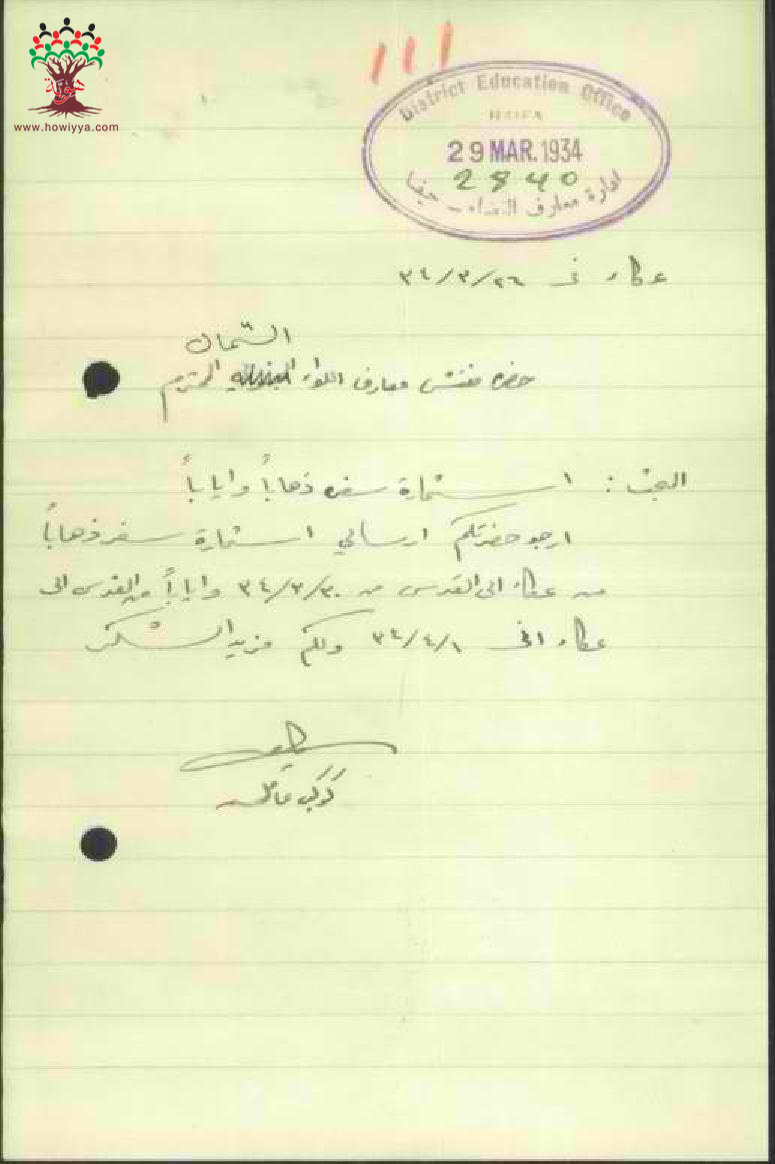 هوية
www.howiyya.com
111
District Education Office
HAIFA
29 MAR. 1934
2840
ادارة معارف القضاء - حيفا
عكاء في ٣٤/٣/٢٦
الشمالي
حضرة مفتش معارف اللواء المحترم
البحث : استمارة سفر ذهاباً واياباً
ارجو حضرتكم ارسالي استمارة سفر ذهاباً
من عكاء الى القدس من ٣٤/٣/٣٠ واياباً من القدس الى
عكاء في ٣٤/٤/١ ولكم مزيد الشكر